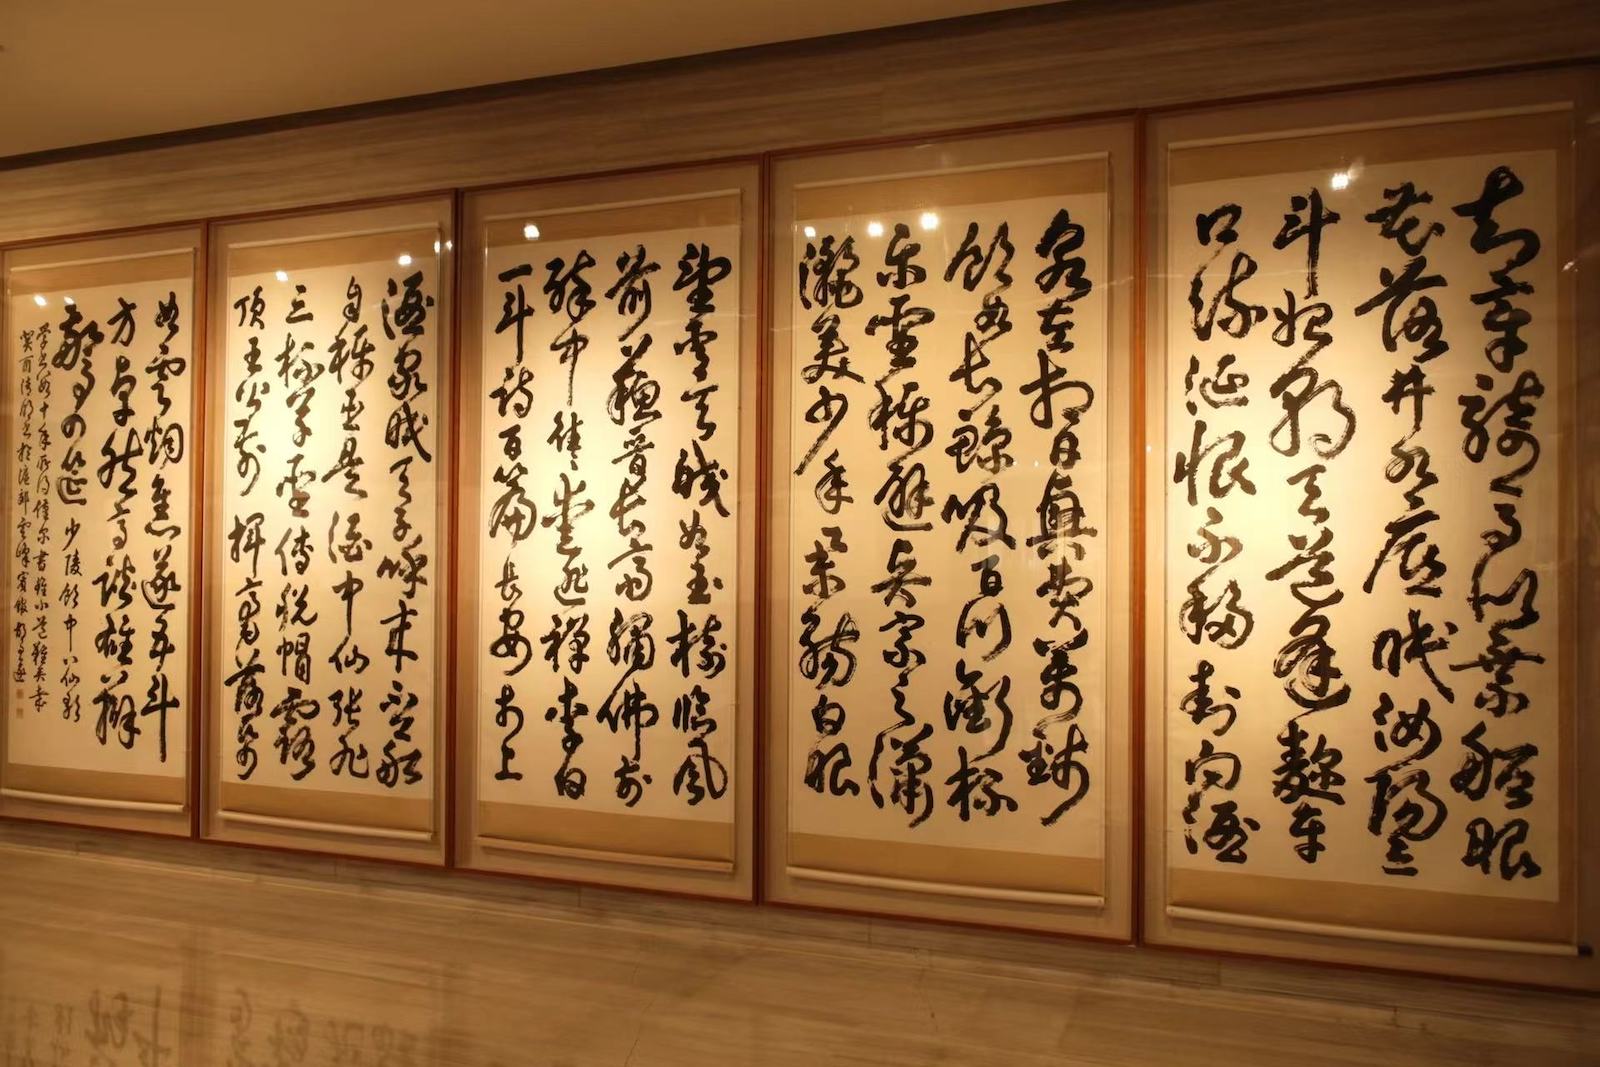 知章騎馬似乘船眼
花落井水底眠汝陽三
斗始朝天道逢麴車
口流涎恨不移封向酒
泉左相日興費萬錢
飲如長鯨吸百川銜杯
樂聖稱避賢宗之瀟
灑美少年舉觴白眼
望青天皎如玉樹臨風
前蘇晉長齋繡佛前
醉中往往愛逃禪李白
一斗詩百篇長安市上
酒家眠天子呼來不上船
自稱臣是酒中仙張旭
三杯草聖傳脫帽露
頂王公前揮毫落紙
如雲煙焦遂五斗
方卓然高談雄辯
驚四筵 少陵飲中八仙歌
學書數十年所得僅爾書雖小道難矣哉
癸酉清明書於滬郡雲峰賓館 胡問遂